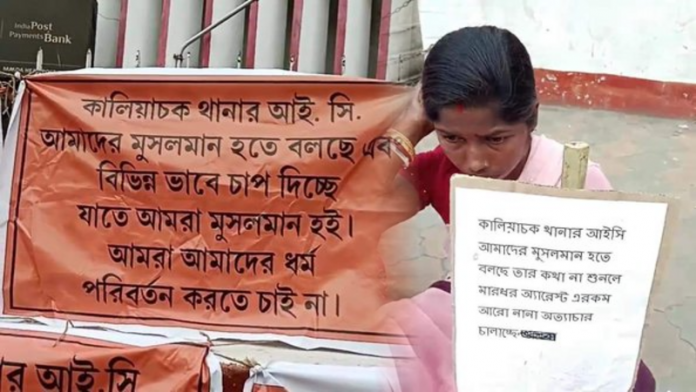 India Post
Payments Bank
কালিয়াচক থানার আই. সি.
আমাদের মুসলমান হতে বলছে এবং
বিভিন্ন ভাবে চাপ দিচ্ছে
যাতে আমরা মুসলমান হই।
আমরা আমাদের ধর্ম
পরিবর্তন করতে চাই না।
র আই. সি
কালিয়াচক থানার আইসি
আমাদের মুসলমান হতে
বলছে তার কথা না শুনলে
মারধর অ্যারেস্ট এরকম
আরো নানা অত্যাচার
চালাচ্ছে